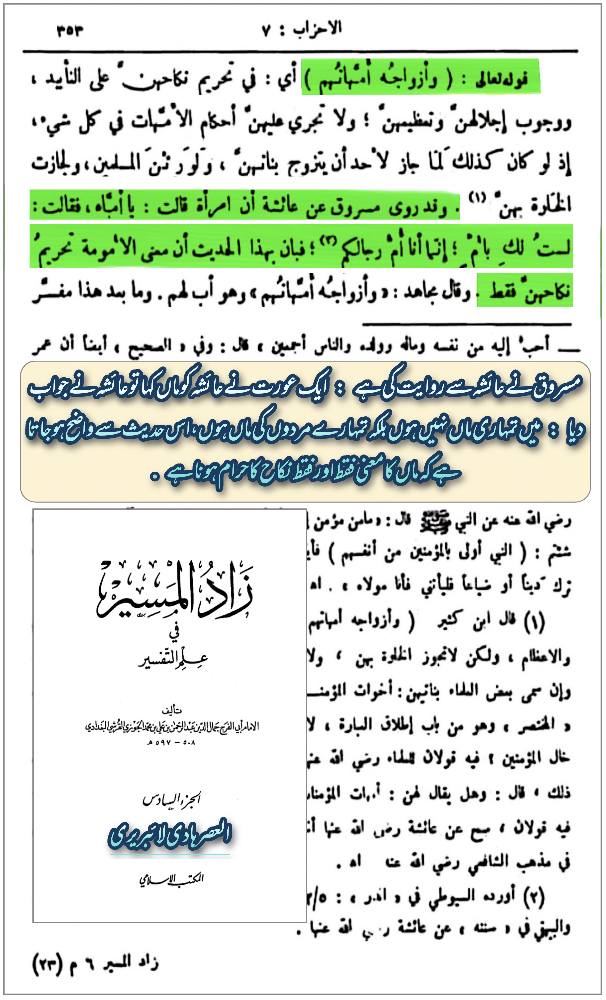 الاحزاب : ٧
٣٥٣
قوله تعالى : ( وأزواجُه أمَّهاتُهم ) أي : في تحريم نكاحهنَّ على التأبيد ،
ووجوب إجلالهنَّ وتعظيمهنَّ ؛ ولا تجري عليهنَّ أحكام الأُمَّهات في كل شيء ،
إذ لو كان كذلك لَمَا جاز لأحد أن يتزوج بناتهنَّ ، ولَوَرِثْنَ المسلمين ، ولجازت
الخَلوة بهنَّ (١) . وقد روى مسروق عن عائشة أن امرأة قالت : يا أُمَّاه ، فقالت :
لستُ لكِ بأُمّ ؛ إنَّما أنا أُمّ رجالكم (٢) ؛ فبان بهذا الحديث أن معنى الأُمومة تحريمُ
نكاحهنَّ فقط . وقال مجاهد : « وأزواجُه أُمَّهاتُهم » وهو أب لهم . وما بعد هذا مفسَّر
ــ أحبَّ إليه من نفسه وماله وولده والناس أجمعين ، قال : وفي « الصحيح » أيضاً أن عمر
مسروق نے عائشہ سے روایت کی ہے : ایک عورت نے عائشہ کو ماں کہا تو عائشہ نے جواب
دیا : میں تمہاری ماں نہیں ہوں بلکہ تمہارے مردوں کی ماں ہوں ، اس حدیث سے واضح ہو جاتا
ہے کہ ماں کا معنی فقط اور فقط نکاح کا حرام ہونا ہے .
رضي الله عنه عن النبي ﷺ قال : « مامن مؤمن إ
شئتم : ( النبي أولى بالمؤمنين من أنفسهم )
ترك ديناً أو ضياعاً فليأتني فأنا مولاه » . اه
(١) قال ابن كثير ( وأزواجه أمهاتهم
والاعظام ، ولكن لاتجوز الخلوة بهن ، ولا
وإن سمى بعض العلماء بناتهن : أخوات المؤمنـ
« المختصر » وهو من باب إطلاق العبارة ، لا
خال المؤمنين ؟ فيه قولان للعلماء رضي الله عنه
ذلك ، قال : وهل يقال لهن : أمهات المؤمنات
فيه قولان ، صح عن عائشة رضي الله عنها أنـ
في مذهب الشافعي رضي الله عنه اه .
(٢) أورده السيوطي في « الدر » : ٥/
والبيهقي في « سننه » عن عائشة رضي الله عنها .
زَادُ المَسِير
في
عِلم التَفسير
تأليف
الإمام أبي الفرج جمال الدين عبد الرحمن بن علي بن محمد الجوزي القرشي البغدادي
٥٠٨ - ٥٩٧ هـ
الجزء السادس
العصر ہادی لائبریری
المكتب الإسلامي
زاد المسير ٦ م (٢٣)